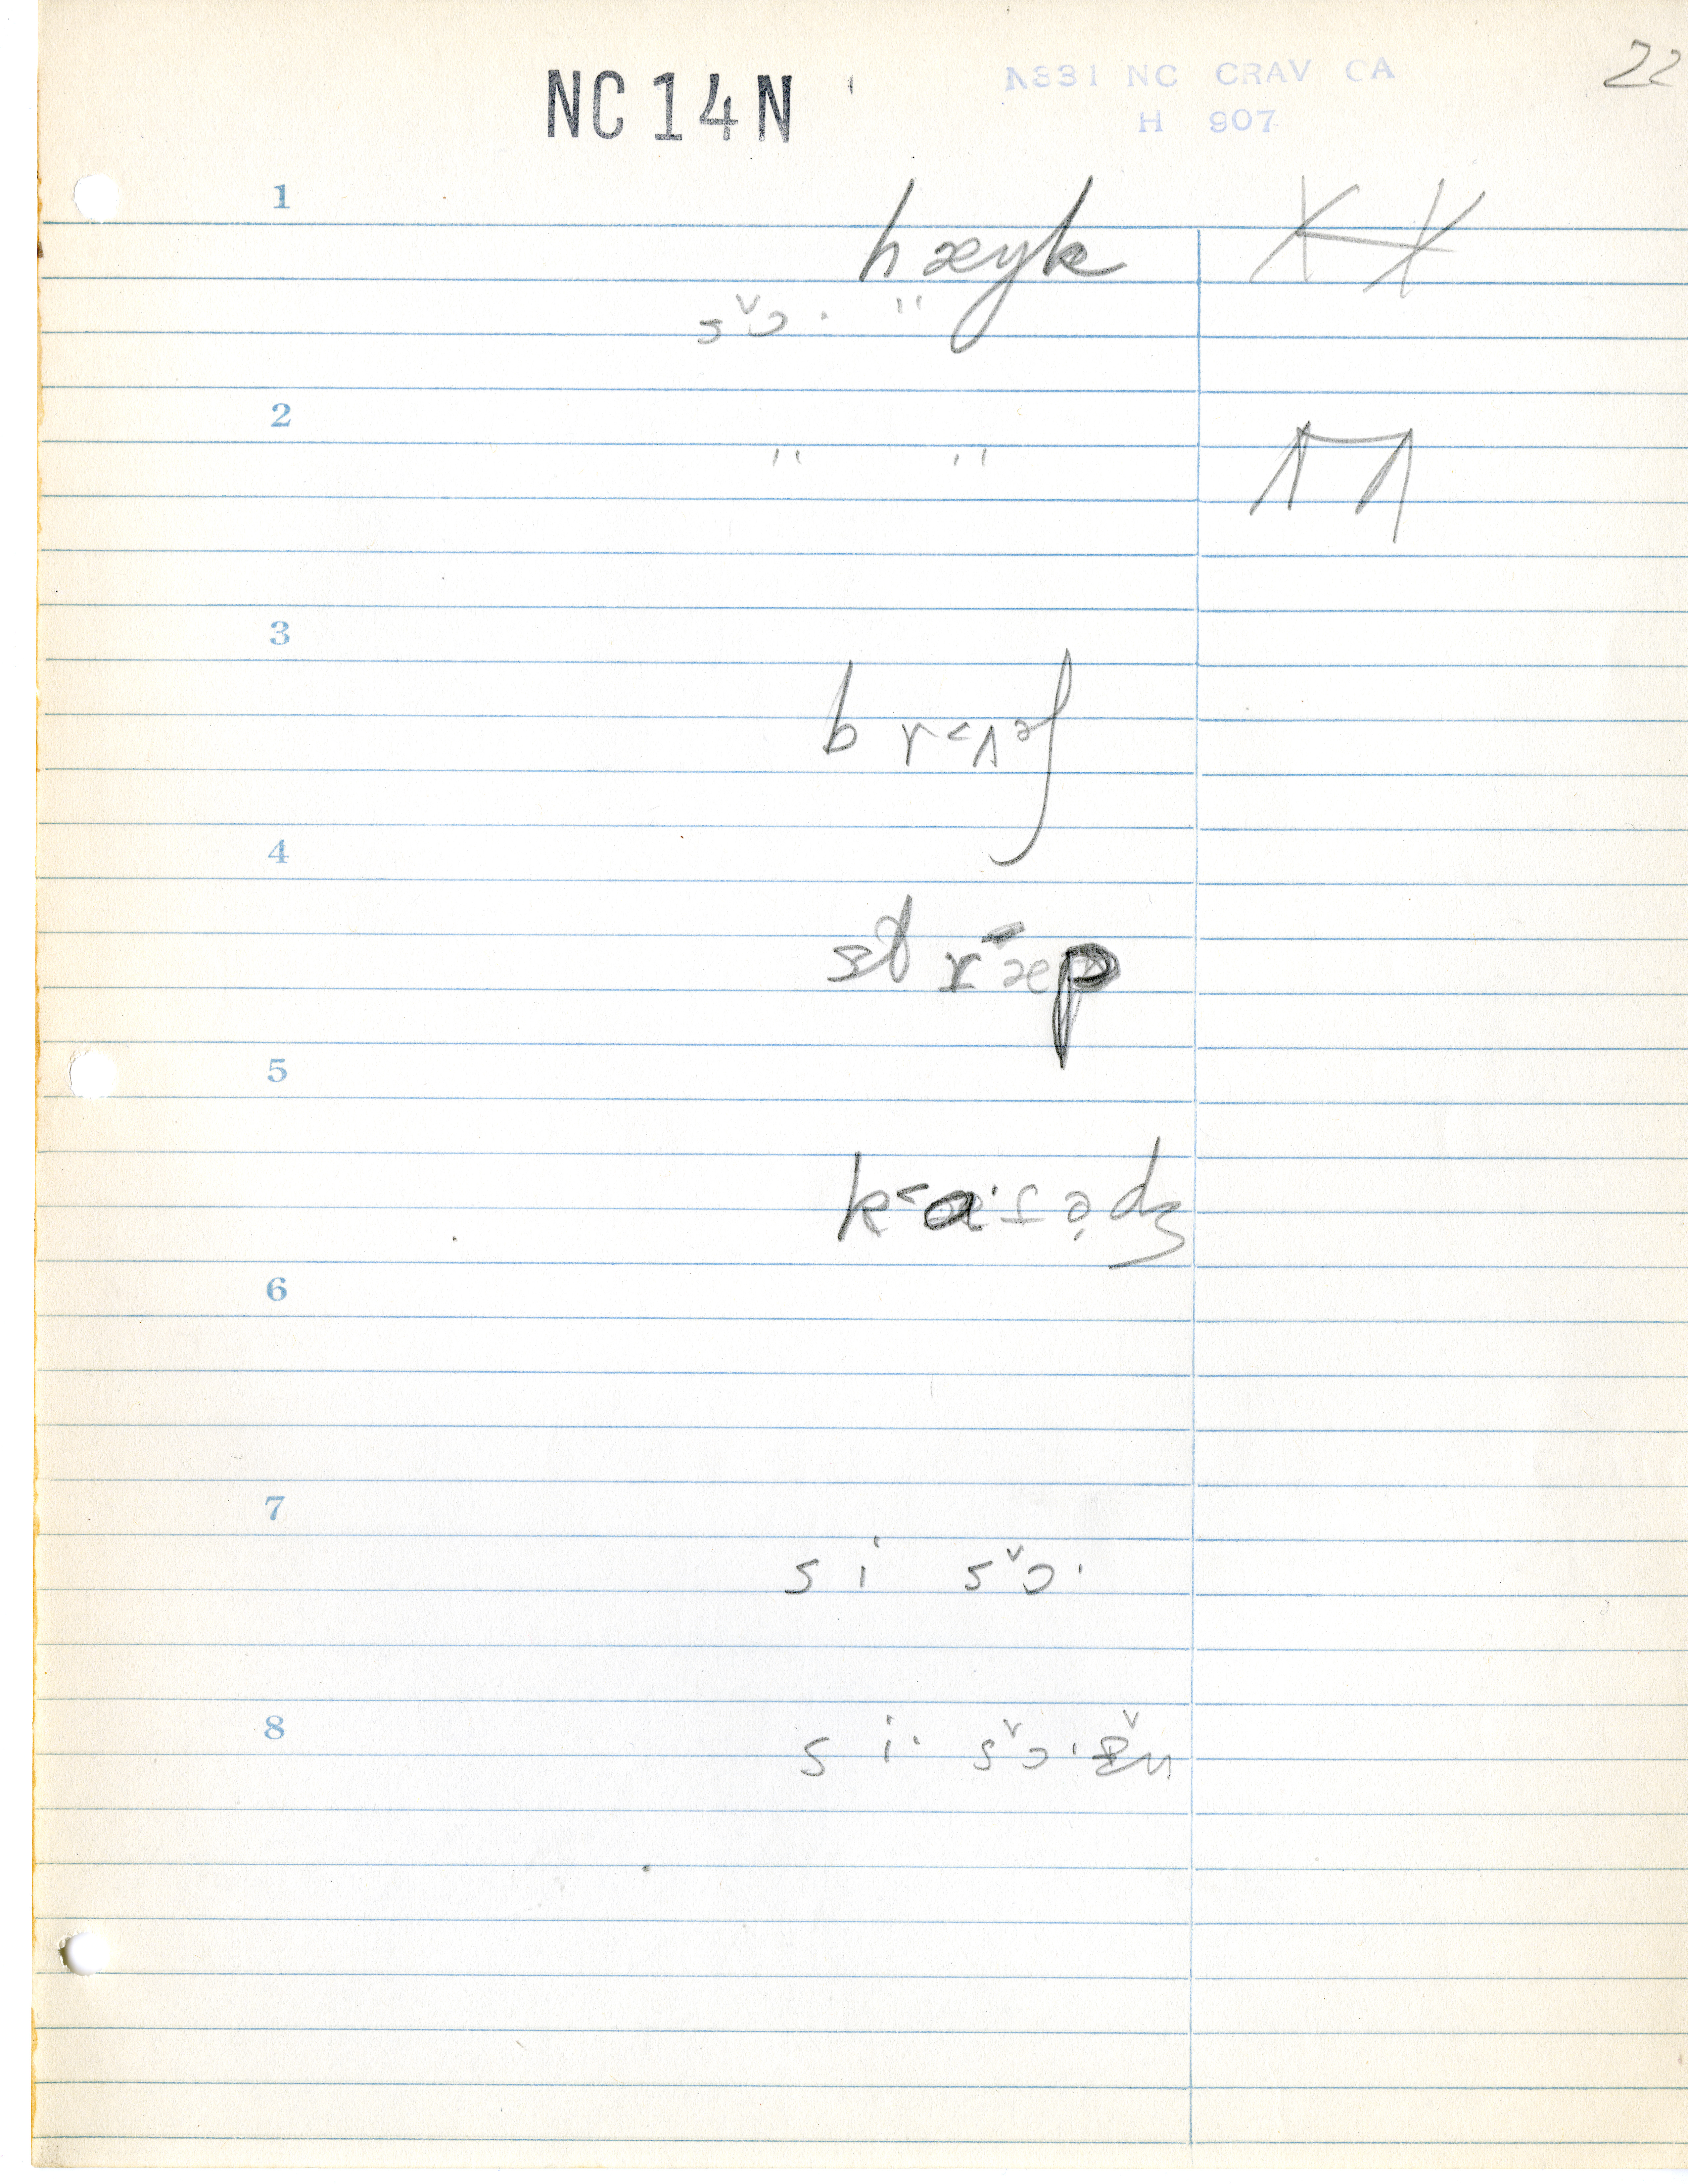 NC 14 N
A331 NC CRAV CA
H 907
22
1
hæyk
sɔ̌· "
2
" "
3
br˂ʌᵊʃ
4
stræp
5
k˂a·ɾə̣dʒ
6
7
si sɔ̌·
8
si· sɔ̌·